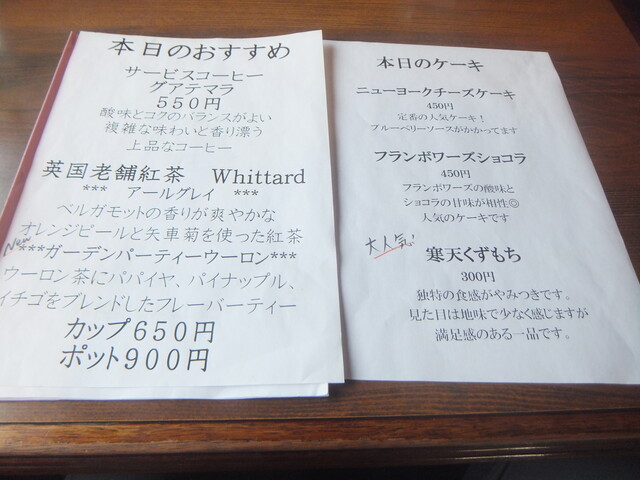 本日のおすすめ
サービスコーヒー
グアテマラ
550円
酸味とコクのバランスがよい
複雑な味わいと香り漂う
上品なコーヒー
英国老舗紅茶 Whittard
*** アールグレイ ***
ベルガモットの香りが爽やかな
オレンジピールと矢車菊を使った紅茶
New
***ガーデンパーティーウーロン***
ウーロン茶にパパイヤ、パイナップル、
イチゴをブレンドしたフレーバーティー
カップ650円
ポット900円
本日のケーキ
ニューヨークチーズケーキ
450円
定番の人気ケーキ！
ブルーベリーソースがかかってます
フランボワーズショコラ
450円
フランボワーズの酸味と
ショコラの甘味が相性◎
人気のケーキです
大人気!
寒天くずもち
300円
独特の食感がやみつきです。
見た目は地味で少なく感じますが
満足感のある一品です。